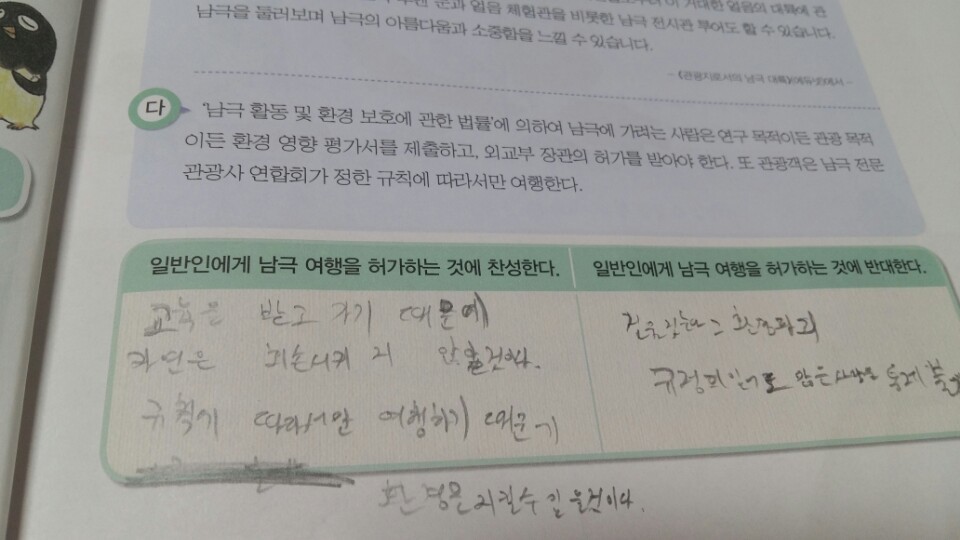 남극을 둘러보며 남극의 아름다움과 소중함을 느낄 수 있습니다.
- 《관광지로서의 남극 대륙》(에듀넷)에서 -
다
'남극 활동 및 환경 보호에 관한 법률'에 의하여 남극에 가려는 사람은 연구 목적이든 관광 목적
이든 환경 영향 평가서를 제출하고, 외교부 장관의 허가를 받아야 한다. 또 관광객은 남극 전문
관광사 연합회가 정한 규칙에 따라서만 여행한다.
일반인에게 남극 여행을 허가하는 것에 찬성한다.
일반인에게 남극 여행을 허가하는 것에 반대한다.
교육을 받고 가기 때문에
자연은 회손시키지 않을것이다.
규칙에 따라서만 여행하기 때문에
환경을 지킬수 있을것이다.
규정되있어도 않은사람을